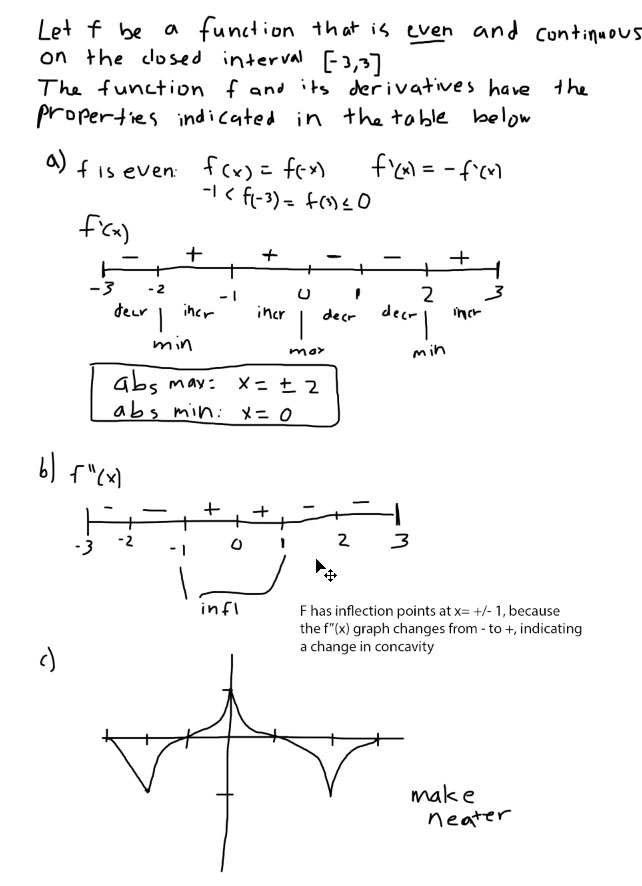 Let f be a function that is even and continuous
on the closed interval [-3,3]
The function f and its derivatives have the
properties indicated in the table below
a) f is even: f(x) = f(-x) f'(x) = -f'(x)
-1 < f(-3) = f(3) ≤ 0
f'(x)
- + + - - +
-3 -2 -1 0 1 2 3
decr incr incr decr decr incr
min max min
abs max: x = ± 2
abs min: x = 0
b) f"(x)
- - + + - -
-3 -2 -1 0 1 2 3
infl
F has inflection points at x= +/- 1, because
the f"(x) graph changes from - to +, indicating
a change in concavity
c)
make
neater